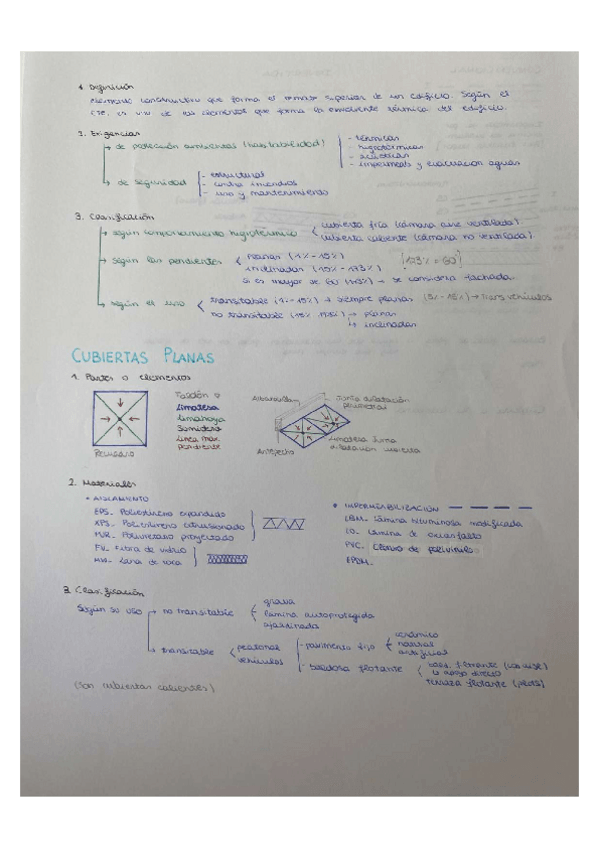 1. Definición
elemento constructivo que forma el remate superior de un edificio. Según el
CTE, es uno de los elementos que forma la envolvente térmica del edificio.
2. Exigencias
→ de protección ambiental (habitabilidad) - térmicas
- higrotérmicas
- acústicas
- impermeab. y evacuación aguas
→ de seguridad - estructural
- contra incendios
- uso y mantenimiento
3. Clasificación
→ según comportamiento higrotérmico cubierta fría (cámara aire ventilada).
cubierta caliente (cámara no ventilada).
→ según las pendientes planas (1%-15%) 173% = 60°
inclinadas (15%-173%)
si es mayor de 60 (173%) → se considera fachada.
→ según el uso transitable (1%-15%) → siempre planas (5%-15%) → trans. vehículos
no transitable (15% 173%) → planas
→ inclinadas
CUBIERTAS PLANAS
1. Partes o elementos
Faldón
Limatesa
Limahoya
Sumidero
Línea máx.
pendiente
Recuadro
Albardilla
Junta dilatación
perimetral
Antepecho
Limatesa Junta
dilatación cubierta
2. Materiales
• AISLAMIENTO
EPS_ Poliestireno expandido
XPS_ Poliestireno extrusionado
PUR_ Poliuretano proyectado
FV_ Fibra de vidrio
MW_ Lana de roca
• IMPERMEABILIZACIÓN
LBM_ Lámina bituminosa modificada
LO_ Lámina de oxiasfalto
PVC_ Cloruro de polivinilo
EPDM_
3. Clasificación
Según su uso → no transitable - grava
- lámina autoprotegida
- ajardinada
→ transitable peatonal
vehículos
- pavimento fijo cerámico
natural
artificial
- baldosa flotante bald. filtrante (losa aisl.)
↳ apoyo directo
terraza flotante (plots)
(son cubiertas calientes)